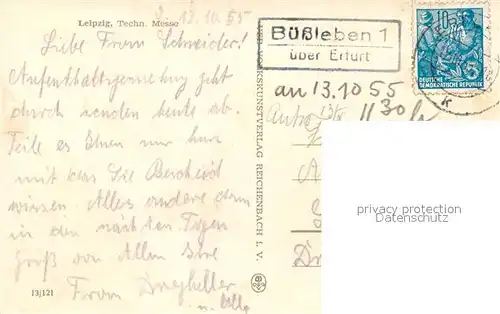 Leipzig, Techn. Messe
12.10.55
Liebe Frau Schneider!
Aufenthaltsgenehmigung geht
durch senden heute ab.
Teile es Ihnen nur kurz
mit damit Sie Bescheid
wissen. Alles andere dann
in den nächsten Tagen
Gruß von Allen Ihre
Frau
13j121
VEB VOLKSKUNSTVERLAG REICHENBACH I. V.
Büßleben 1
über Erfurt
an 13.10 55
1130
10
5
DEUTSCHE
DEMOKRATISCHE REPUBLIK
privacy protection
Datenschutz